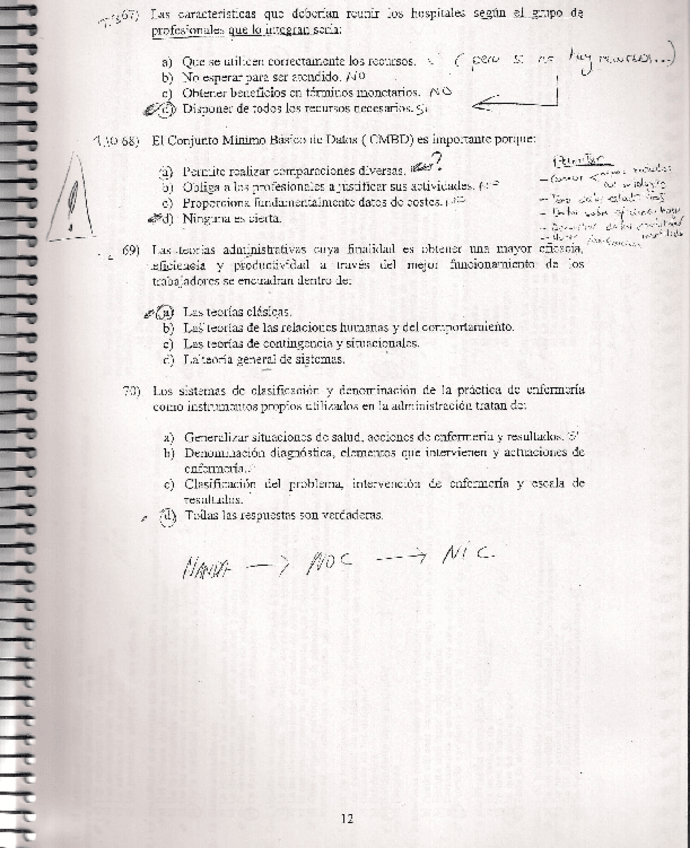 67) Las características que deberían reunir los hospitales según el grupo de
profesionales que lo integran sería:
a) Que se utilicen correctamente los recursos. (pero si no hay recursos...)
b) No esperar para ser atendido. NO
c) Obtener beneficios en términos monetarios. NO
d) Disponer de todos los recursos necesarios. Sí
68) El Conjunto Mínimo Básico de Datos ( CMBD) es importante porque:
a) Permite realizar comparaciones diversas. ?
b) Obliga a los profesionales a justificar sus actividades.
c) Proporciona fundamentalmente datos de costes.
d) Ninguna es cierta.
69) Las teorías administrativas cuya finalidad es obtener una mayor eficacia,
eficiencia y productividad a través del mejor funcionamiento de los
trabajadores se encuadran dentro de:
a) Las teorías clásicas.
b) Las teorías de las relaciones humanas y del comportamiento.
c) Las teorías de contingencia y situacionales.
d) La teoría general de sistemas.
70) Los sistemas de clasificación y denominación de la práctica de enfermería
como instrumentos propios utilizados en la administración tratan de:
a) Generalizar situaciones de salud, acciones de enfermería y resultados. Sí
b) Denominación diagnóstica, elementos que intervienen y actuaciones de
enfermería.
c) Clasificación del problema, intervención de enfermería y escala de
resultados.
d) Todas las respuestas son verdaderas.
NANDA → NOC → NIC
12